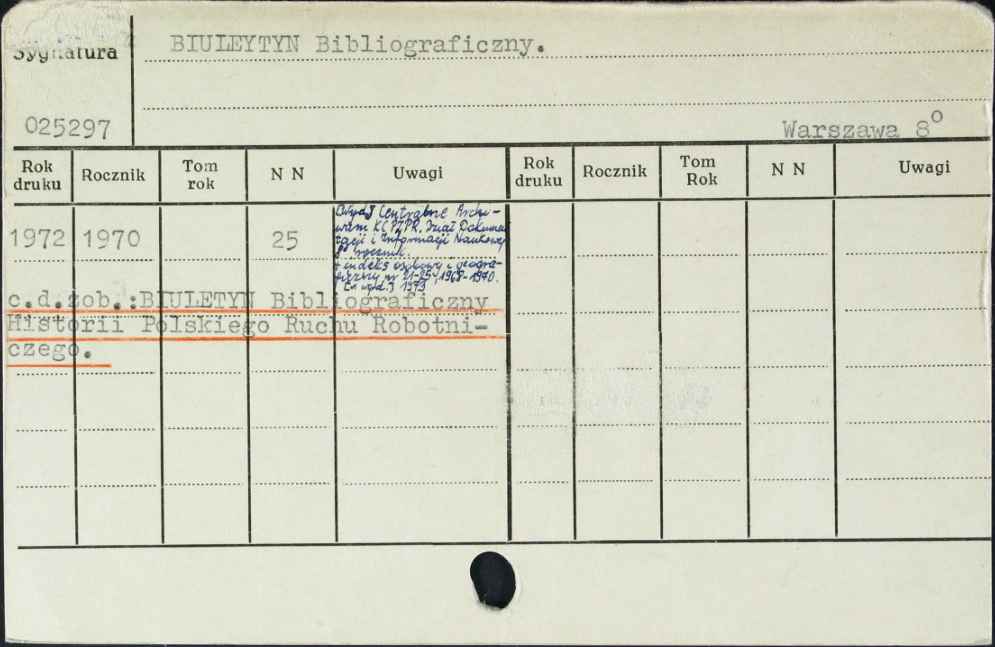 Sygnatura
BIULEYTYN Bibliograficzny.
025297
Warszawa 8º
Rok druku Rocznik Tom rok N N Uwagi Rok druku Rocznik Tom Rok N N Uwagi
[Wyd.] Centralne Archi-
wum KC PZPR. Dział Dokumen
tacji i Informacji Naukowej
1972 1970 25
8° rocznik.
+ indeks osobowy i geogra-
ficzny nr 21-25, 1968-1970.
1973
c.d.zob.:BIULETYN Bibliograficzny
Historii Polskiego Ruchu Robotni-
czego.